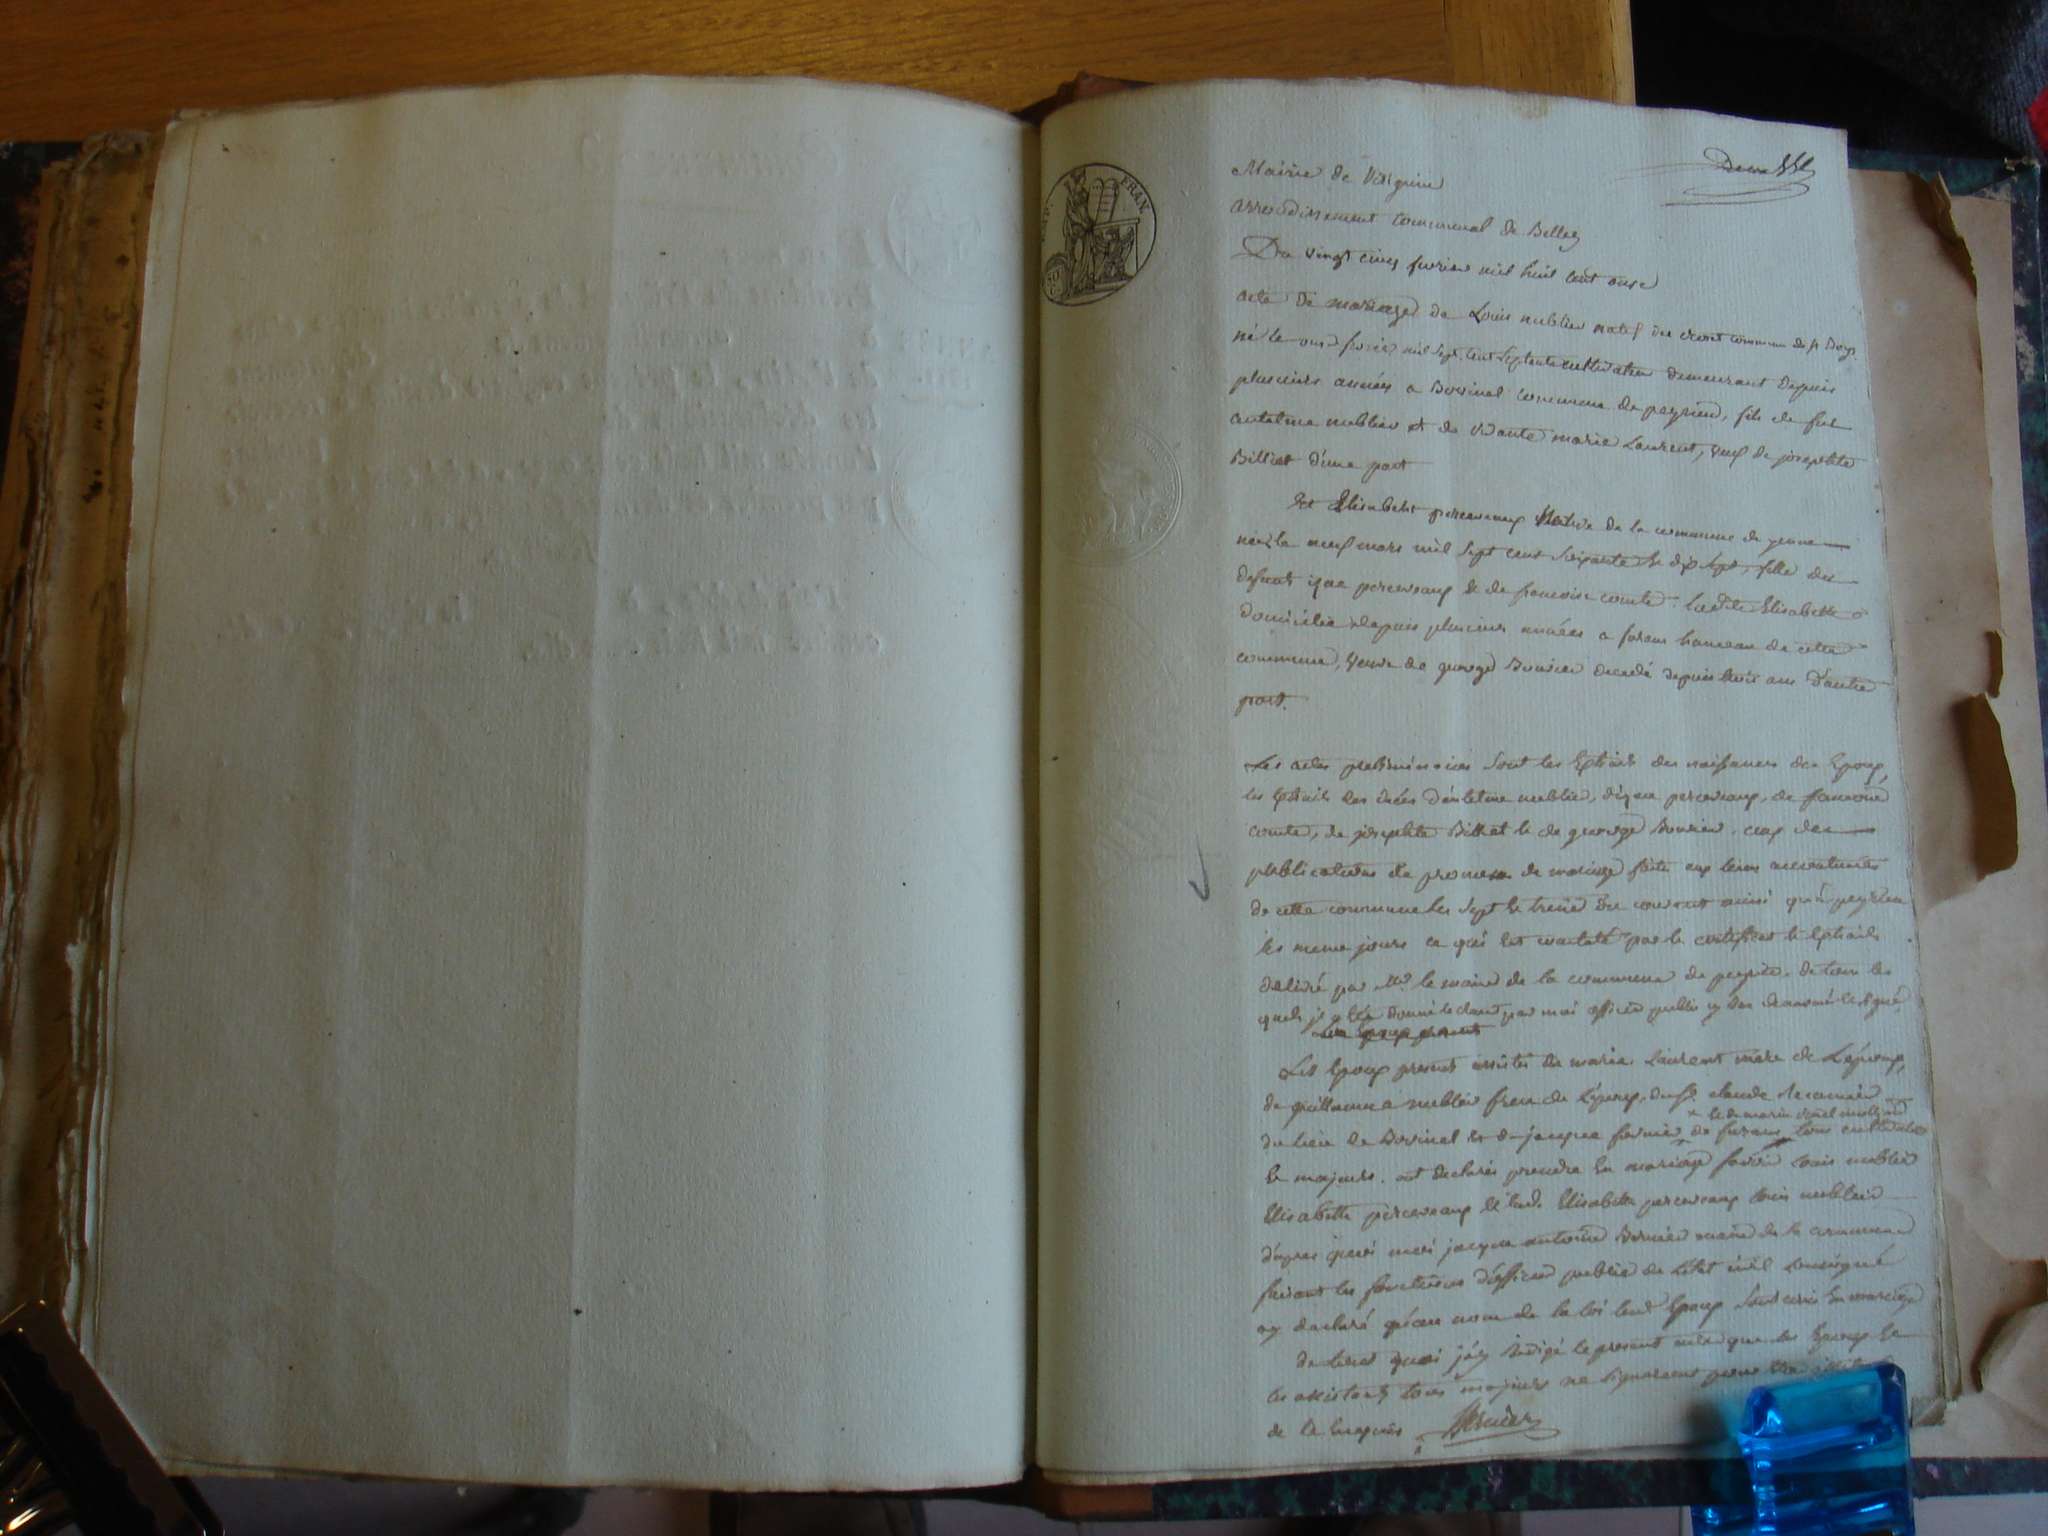 Deux
REP. FRAN.
Mairie de Virignin
arrondissement communal de Belley
Du vingt cinq fevrier mil huit cent onze
acte de mariage de Louis nublier natif du commune de st
né le onze fevrier mil sept cent septante cultivateur demeurant depuis
plusieurs années a Bovinel commune de peyrieu, fils de feu
antelme nublier et de vivante marie Laurent, veuf de josephte
Billiat d'une part
Et Elisabeth perceveaux Native de la commune de yenne
née le neuf mars mil sept cent soixante et dix sept, fille du
defunt perceveaux et de francoise comte. Ladite Elisabette
domiciliée depuis plusieurs années a furans hameau de cette
commune, veuve de george Bouvier decedé depuis trois ans d'autre
part.
Les actes preliminaires sont les Extraits des naissances des Epoux,
les Extraits des decés d'antelme nublier, perceveaux, de francoise
comte, de josephte Billiat et de george Bouvier, ceux des
publications de promesse de mariage faites aux lieux accoutumés
de cette commune les sept et treize du courant ainsi qu'a peyrieu
les meme jours ce qui est constaté par le certificat et Extraits
delivré par Mr le maire de la commune de peyrieu. de tous les
quels il a été donné lecture par moi officier public
Les Epoux presents
Les Epoux presents assistés de marie Laurent mere de L'epoux,
de guillaume nublier frere de L'epoux, du sr. claude Recamier
x et de marin
du lieu de Bovinel et de jacque fornier de furans tous cultivateurs
et majeurs. ont declarés prendre En mariage savoir Louis nublier
Elisabette perceveaux et lad. Elisabette perceveaux Louis nublier
d'apres quoi moi jacque antoine Bernier maire de la commune
faisant les fonctions d'officier public de L'etat civil soussigné
ay declaré qu'au nom de la loi lesd Epoux sont unis En mariage
de tout quoi j'ai redigé le present acte que les Epoux et
les assistants tous majeurs ne signeront pour
de ce Enquis Bernier